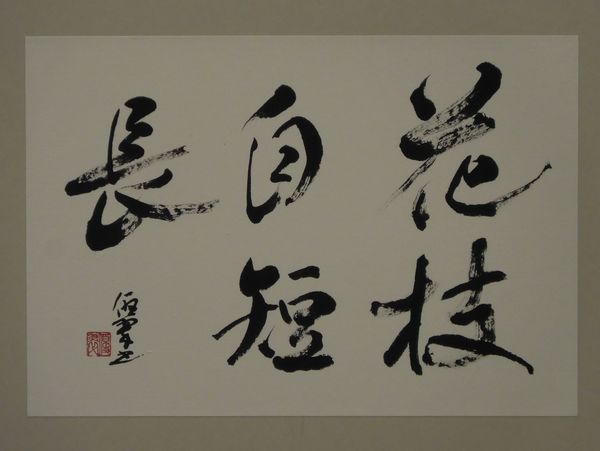 花枝
自短
長